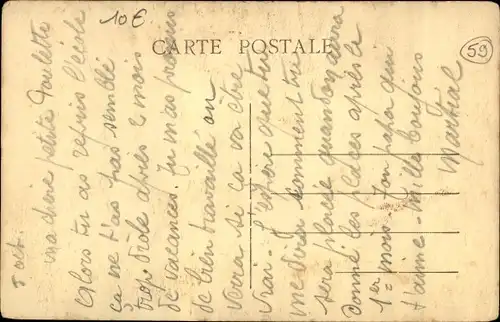 10€
CARTE POSTALE
59
5 oct.
ma chère petite Paulette
Alors tu as repris l'école
ça ne t'as pas semblé
trop drôle après 2 mois
de vacances. Tu m'as promis
de bien travaillé on
verra si ça va être
vrai. J'espère que tu
me diras comment tu
sera placée quand on aura
donné les places après le
1er mois. Ton papa qui
t'aime. Mille toujours
Martial